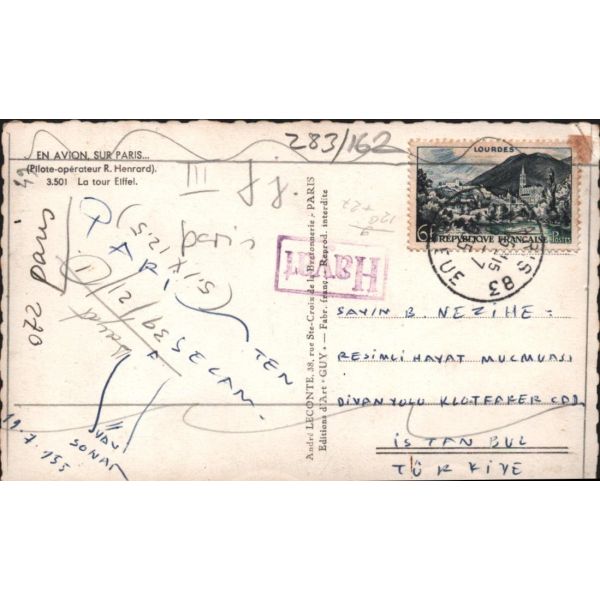 EN AVION, SUR PARIS...
(Pilote-opérateur R. Henrard).
3.501 La tour Eiffel.
283/162
III
paris
220 paris 49
PARİS
TEN
SELAM
SONAR
19.7.955
André LECONTE, 38, rue Ste-Croix de la Bretonnerie - PARIS
Editions d'Art "GUY" — Fabr. franç. Reprod. interdite
Hayat
LOURDES
6F
RÉPUBLIQUE FRANÇAISE
Postes
83
SAYIN B. NEZİHE =
RESİMLİ HAYAT MUCMUASI
DİVANYOLU KLOTFARER CAD.
İSTANBUL
TÜRKİYE